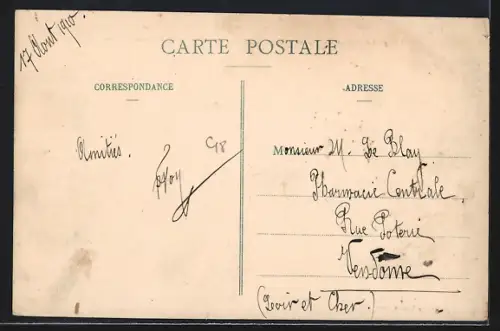 17 Août 1910
CARTE POSTALE
CORRESPONDANCE
ADRESSE
Amitiés.
Monsieur M. Le Blay
Pharmacie Centrale
Rue Poterie
Vendome
(Loir et Cher.)